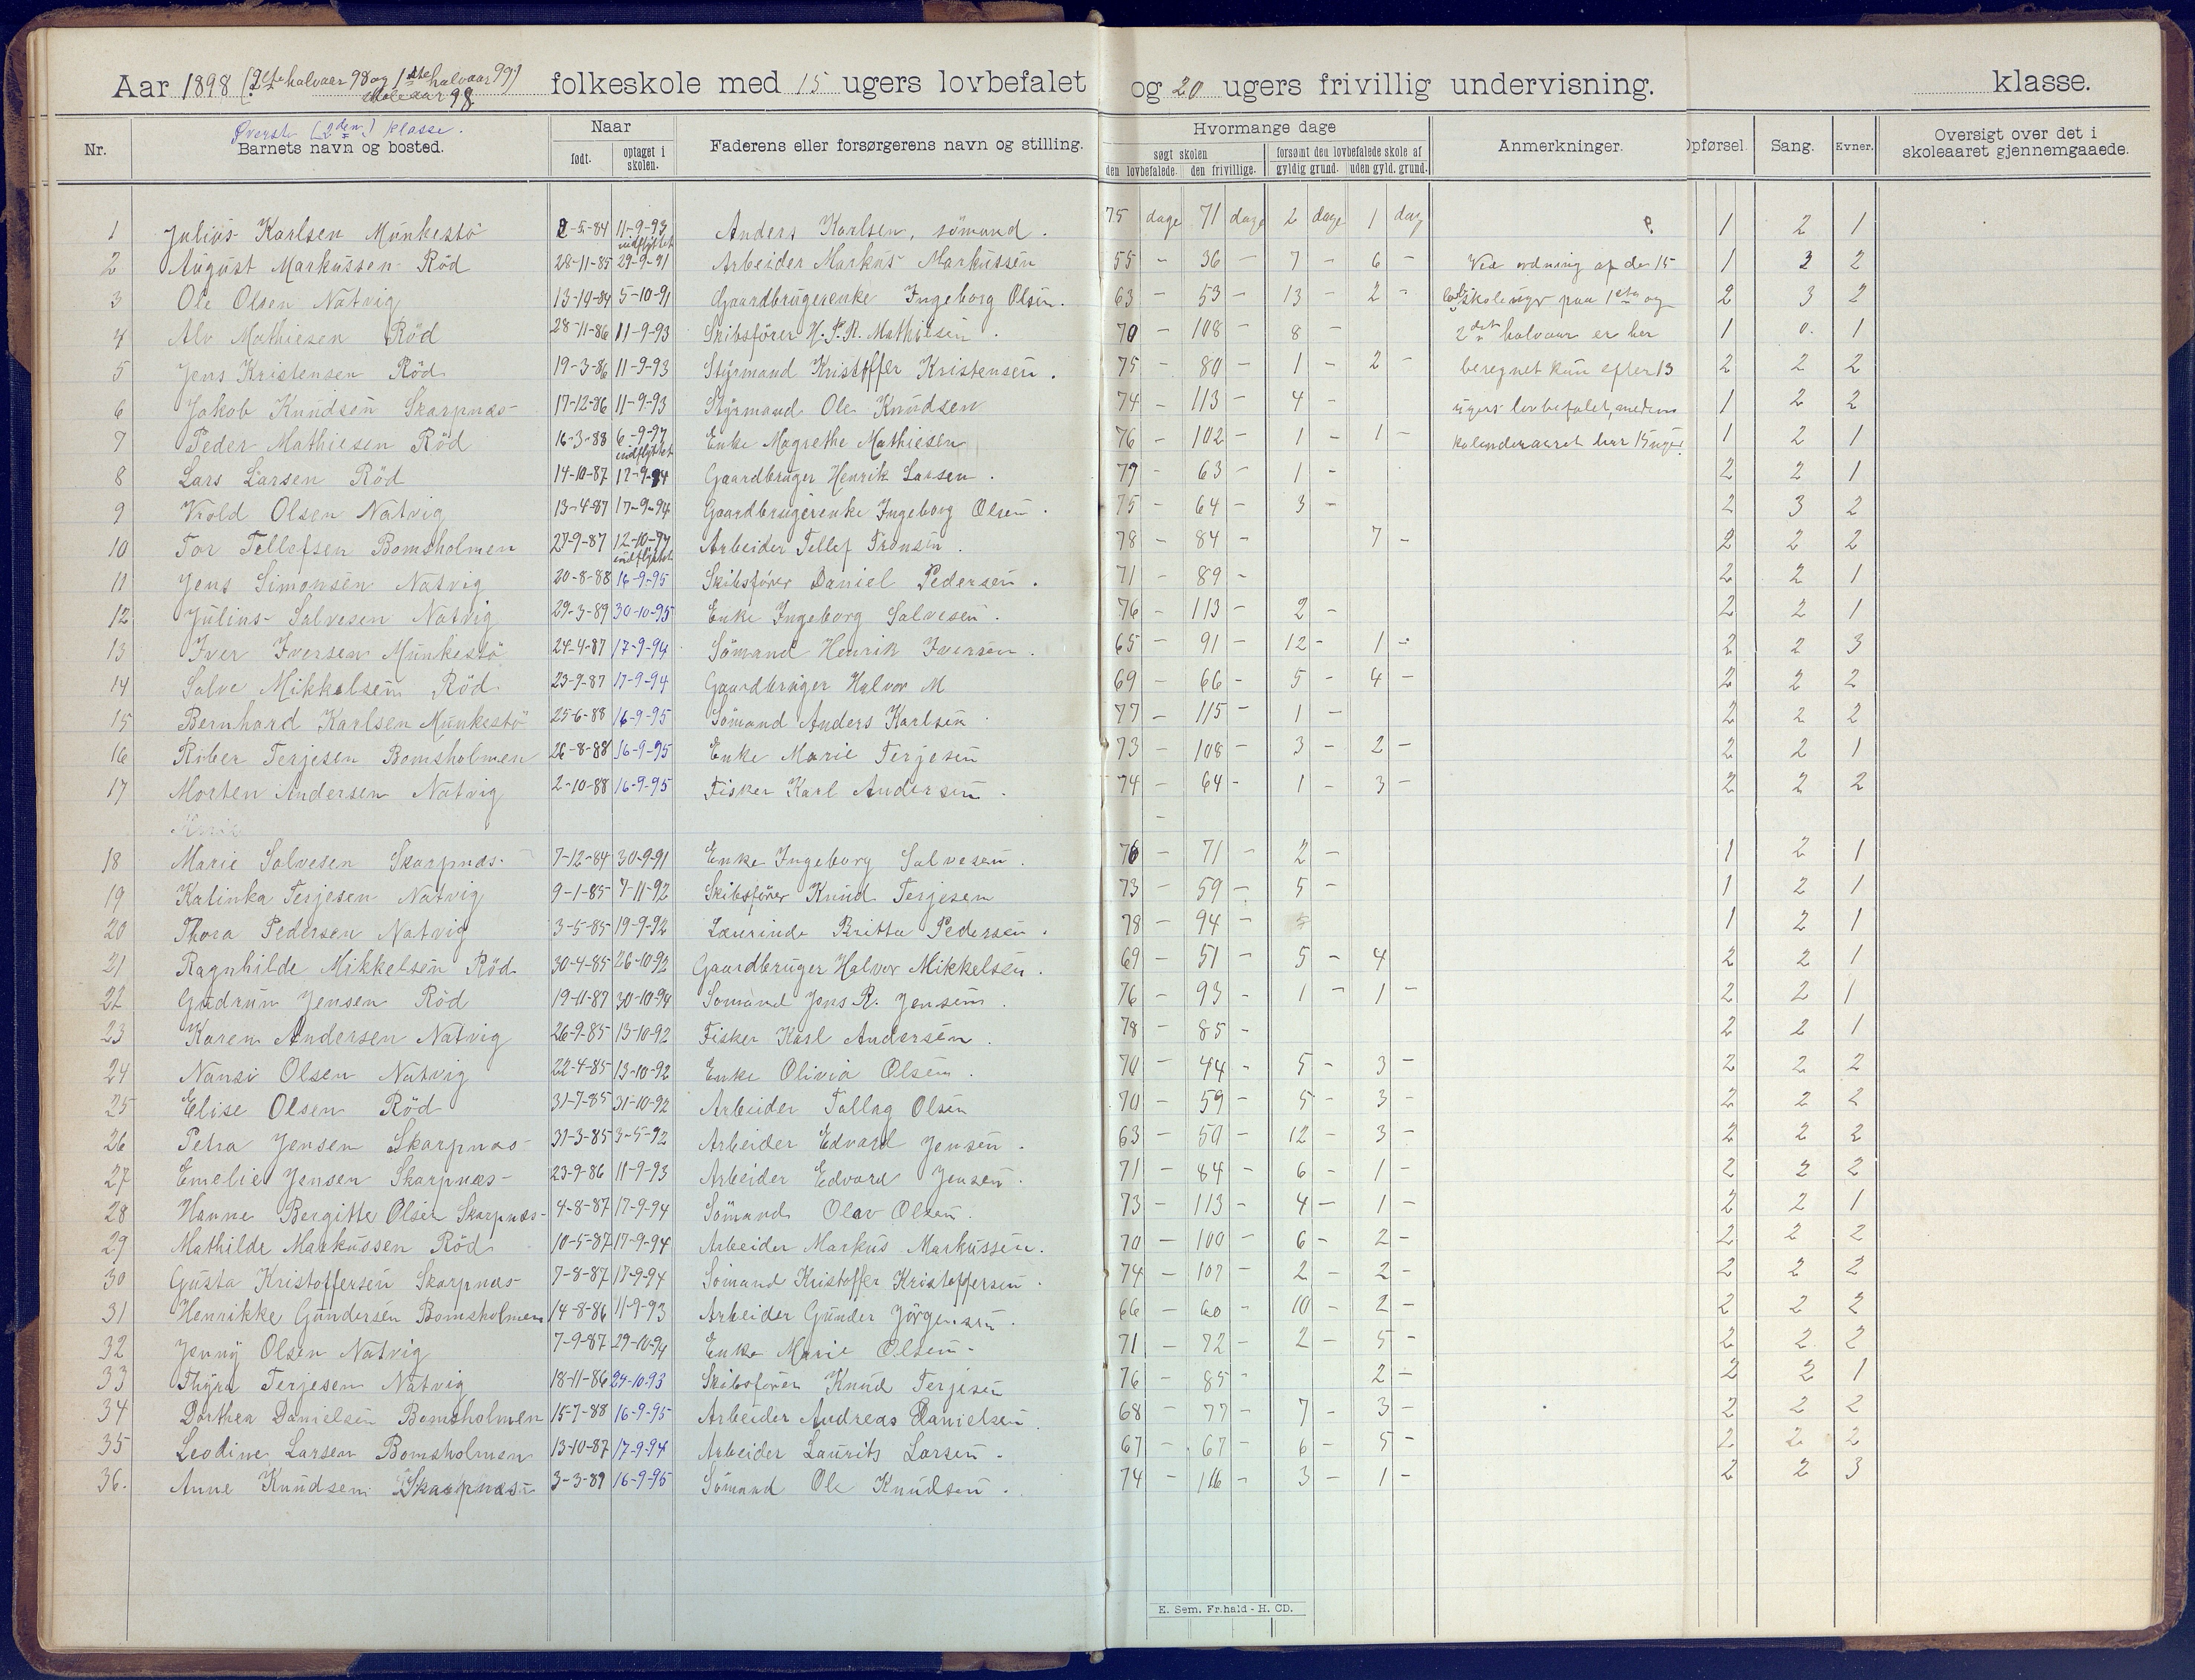 Aar 1898 (2det halvaar 98 og 1ste halvaar 99) folkeskole med 15 ugers lovbefalet og 20 ugers frivillig undervisning. klasse.
Skoleaar 98
Øverste (2den) klasse.
Nr. Barnets navn og bosted. Naar født. optaget i skolen. Faderens eller forsørgerens navn og stilling. Hvormange dage søgt skolen den lovbefalede. den frivillige. forsømt den lovbefalede skole af gyldig grund. uden gyld. grund. Anmerkninger. Opførsel. Sang. Evner. Oversigt over det i skoleaaret gjennemgaaede.
1 Julius Karlsen Munkestö 2-5-84 11-9-93 indflyttet Anders Karlsen, sömand. 75 dage 71 dage 2 dage 1 dag 1 2 1
2 August Markussen Röd 28-11-85 29-9-91 Arbeider Markus Markussen 55 - 36 - 7 - 6 - Ved ordning af de 15 1 3 2
3 Ole Olsen Natvig 13-10-84 5-10-91 Gaardbrugerenke Ingeborg Olsen. 63 - 53 - 13 - 2 - skoleuger paa 1ste og 2 3 2
4 Alv Mathiesen Röd 28-11-86 11-9-93 Skibsförer H. P. R. Mathiesen. 70 - 108 - 8 - 2det halvaar er her 1 0. 1
5 Jens Kristensen Röd 19-3-86 11-9-93 Styrmand Kristoffer Kristensen. 75 - 80 - 1 - 2 - beregnet kun efter 13 2 2 2
6 Jakob Knudsen Skarpnæs 17-12-86 11-9-93 Styrmand Ole Knudsen 74 - 113 - 4 - ugers lovbefalet, medens 1 2 2
7 Peder Mathiesen Röd 16-3-88 6-9-97 indflyttet Enke Magrethe Mathiesen 76 - 102 - 1 - 1 - kalenderaaret har 15 uger. 1 2 1
8 Lars Larsen Röd 14-10-87 12-9-94 Gaardbruger Henrik Larsen. 79 - 63 - 1 - 2 2 1
9 Vrold Olsen Natvig 13-4-87 17-9-94 Gaardbrugerenke Ingeborg Olsen. 75 - 64 - 3 - 2 3 2
10 Tor Tellefsen Bomsholmen 27-9-87 12-10-97 indflyttet Arbeider Tellef Tronsen. 78 - 84 - 7 - 2 2 2
11 Jens Simonsen Natvig 20-8-88 16-9-95 Skibsförer Daniel Pedersen. 71 - 89 - 2 2 1
12 Julius Salvesen Natvig 29-3-89 30-10-95 Enke Ingeborg Salvesen. 76 - 113 - 2 - 2 2 1
13 Iver Iversen Munkestö 24-4-87 17-9-94 Sömand Henrik Iversen. 65 - 91 - 12 - 1 - 2 2 3
14 Salve Mikkelsen Röd 23-9-87 17-9-94 Gaardbruger Halvor M 69 - 66 - 5 - 4 - 2 2 2
15 Bernhard Karlsen Munkestö 25-6-88 16-9-95 Sömand Anders Karlsen 77 - 115 - 1 - 2 2 2
16 Röber Terjesen Bomsholmen 26-8-88 16-9-95 Enke Marie Terjesen 73 - 108 - 3 - 2 - 2 2 1
17 Morten Andersen Natvig 2-10-88 16-9-95 Fisker Karl Andersen. 74 - 64 - 1 - 3 - 2 2 2
18 Marie Salvesen Skarpnæs 7-12-84 30-9-91 Enke Ingeborg Salvesen. 76 - 71 - 2 - 1 2 1
19 Katinka Terjesen Natvig 9-1-85 7-11-92 Skibsförer Knud Terjesen 73 - 59 - 5 - 1 2 1
20 Thora Pedersen Natvig 3-5-85 19-9-92 Laurinde Britta Pedersen. 78 - 94 - 1 2 1
21 Ragnhilde Mikkelsen Röd 30-4-85 26-10-92 Gaardbruger Halvor Mikkelsen. 69 - 51 - 5 - 4 2 2 1
22 Gudrun Jensen Röd 19-11-87 30-10-94 Sömand Jens R. Jensen. 76 - 93 - 1 - 1 - 2 2 1
23 Karen Andersen Natvig 26-9-85 13-10-92 Fisker Karl Andersen. 78 - 85 - 2 2 1
24 Nansi Olsen Natvig 22-4-85 13-10-92 Enke Olivia Olsen. 70 - 44 - 5 - 3 - 2 2 2
25 Elise Olsen Röd 31-7-85 31-10-92 Arbeider Tallag Olsen 70 - 59 - 5 - 3 - 2 2 2
26 Petra Jensen Skarpnæs 31-3-85 3-5-92 Arbeider Edvard Jensen. 63 - 50 - 12 - 3 - 2 2 2
27 Emelie Jensen Skarpnæs 23-9-86 11-9-93 Arbeider Edvard Jensen. 71 - 84 - 6 - 1 - 2 2 2
28 Hanne Bergitte Olsen Skarpnæs 4-8-87 17-9-94 Sömand Olav Olsen. 73 - 113 - 4 - 1 - 2 2 1
29 Mathilde Markussen Röd 10-5-87 17-9-94 Arbeider Markus Markussen. 70 - 100 - 6 - 2 - 2 2 2
30 Gusta Kristoffersen Skarpnæs 7-8-87 17-9-94 Sömand Kristoffer Kristoffersen. 74 - 107 - 2 - 2 - 2 2 2
31 Henrikke Gundersen Bomsholmen 14-8-86 11-9-93 Arbeider Gunder Jörgensen. 66 - 60 - 10 - 2 - 2 2 2
32 Jenny Olsen Natvig 7-9-87 29-10-94 Enke Marie Olsen. 71 - 72 - 2 - 5 - 2 2 2
33 Thyra Terjesen Natvig 18-11-86 24-10-93 Skibsförer Knud Terjesen 76 - 85 - 2 - 2 2 1
34 Dorthea Danielsen Bomsholmen 15-7-88 16-9-95 Arbeider Andreas Danielsen. 68 - 77 - 7 - 3 - 2 2 2
35 Leodine Larsen Bomsholmen 13-10-87 17-9-94 Arbeider Laurits Larsen. 67 - 67 - 6 - 5 - 2 2 2
36. Anne Knudsen Skarpnæs 3-3-89 16-9-95 Sömand Ole Knudsen. 74 - 116 - 3 - 1 - 2 2 3
E. Sem. Fr.hald - H. CD.